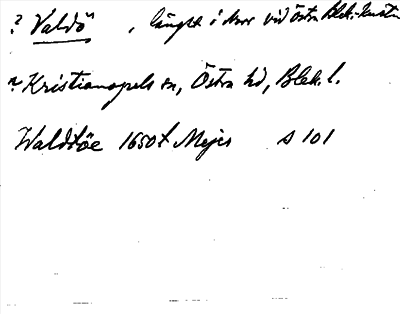 ? Valdö , längst i norr vid Östra Blek.-kusten
? Kristianopels sn, Östra hd, Blek. l.
Waldtöe 1650 t Mejer s 101